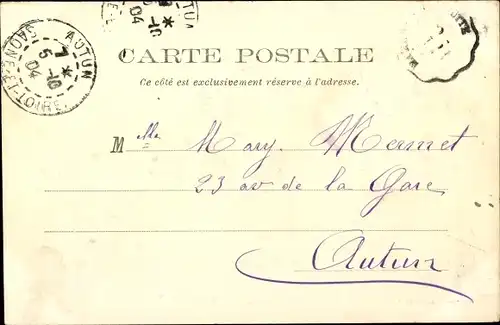 AUTUN
7 * 5 -10 04
SAONE-ET-LOIRE
CARTE POSTALE
Ce côté est exclusivement réservé à l'adresse.
Mlle Mary. Mermet
23 av de la Gare
Autun